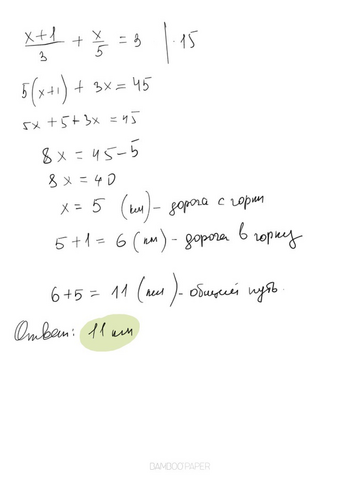 (x+1)/3 + x/5 = 3 | ·15
5(x+1) + 3x = 45
5x + 5 + 3x = 45
8x = 45-5
8x = 40
x = 5 (км) - дорога с горки
5+1 = 6 (км) - дорога в горку
6+5 = 11 (км) - общий путь.
Ответ: 11 км
BAMBOO PAPER